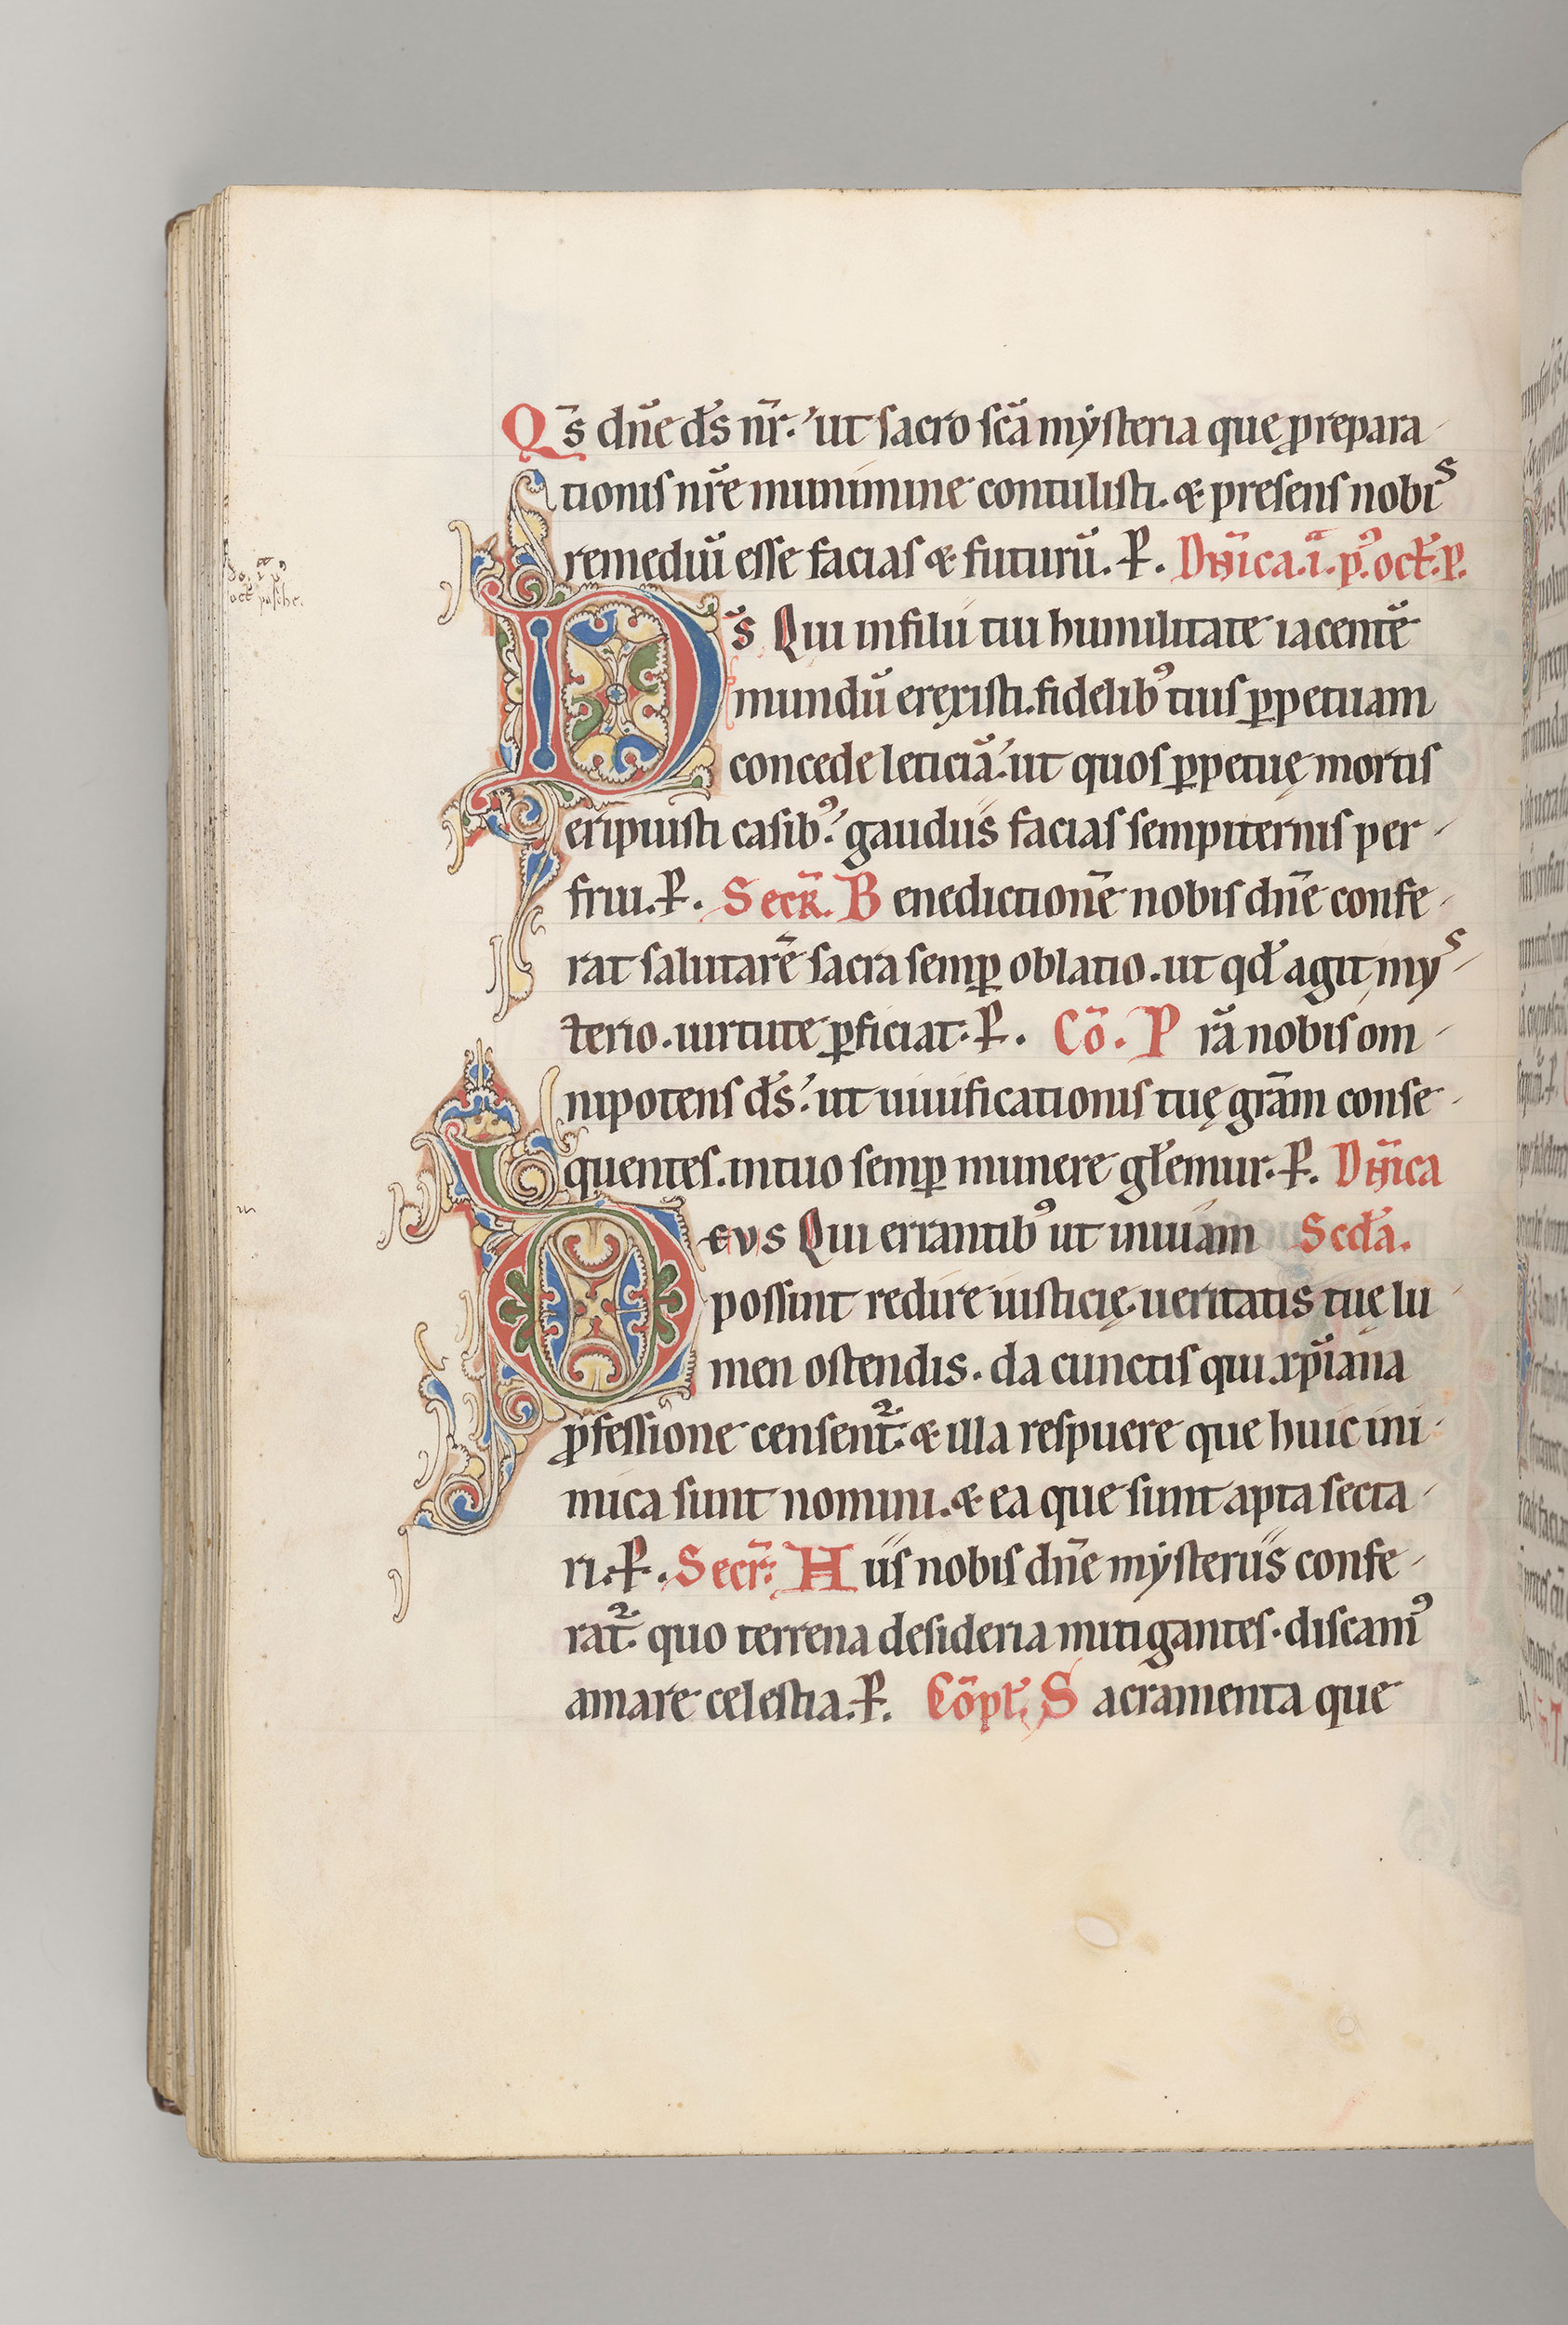 Qs̄ dn̄e ds̄ nr̄. ut sacro scā mẏsteria que prepara
tionis nr̄e munimine contulisti. & presens nobis
remediū esse facias & futurū. P. Dn̄ica.i. p̄ꝰ. oct̄. p.
do. i. pꝰ
oct pasche.
Ds̄ Qui in filii tui humilitate iacentē
mundū erexisti. fidelibꝰ tuis ꝑpetuam
concede leticiā. ut quos ꝑpetuę mortis
eripuisti casibꝰ. gaudiis facias sempiternis per
frui. P. Secr̄. Benedictionē nobis dn̄e confe
rat salutarē sacra semꝑ oblatio. ut qd̄ agit mys
terio. uirtute ꝑficiat. P. Cō. Prā nobis om
nipotens ds̄. ut uiuificationis tuę grām conse
quentes. in tuo semꝑ munere gl̄emur. P. Dn̄ica
Deus Qui errantibꝰ ut in uiam Scd̄a.
possint redire iusticię. ueritatis tuę lu
men ostendis. da cunctis qui xp̄iana
ꝓfessione censent᷑. & illa respuere que huic ini
mica sunt nomini. & ea que sunt apta secta
ri. P. Secr̄. Hiis nobis dn̄e mẏsteriis confe
rat᷑. quo terrena desideria mitigantes. discamꝰ
amare celestia. P. Cōpl̄. Sacramenta que